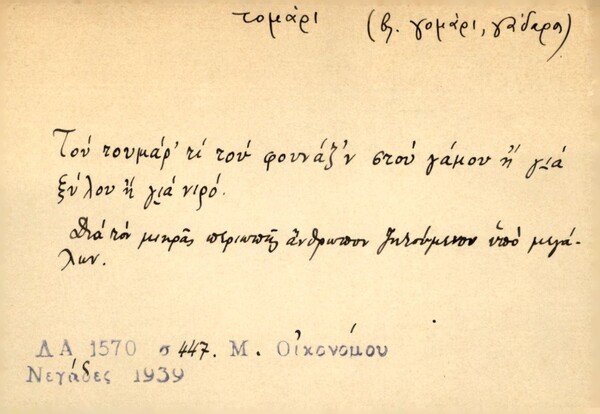 τομάρι (βλ. γομάρι, γάδαρος)
Τοῦ τουμάρ' τί τοὺ φουνάζ'ν στοὺ γάμου ἢ γιὰ
ξύλου ἢ γιὰ νιρό.
Διὰ τὸν μικρᾶς περιωπῆς ἄνθρωπον ζητούμενον ὑπὸ μεγά-
λων.
ΔΑ 1570 σ 447. Μ. Οἰκονόμου
Νεγάδες 1939